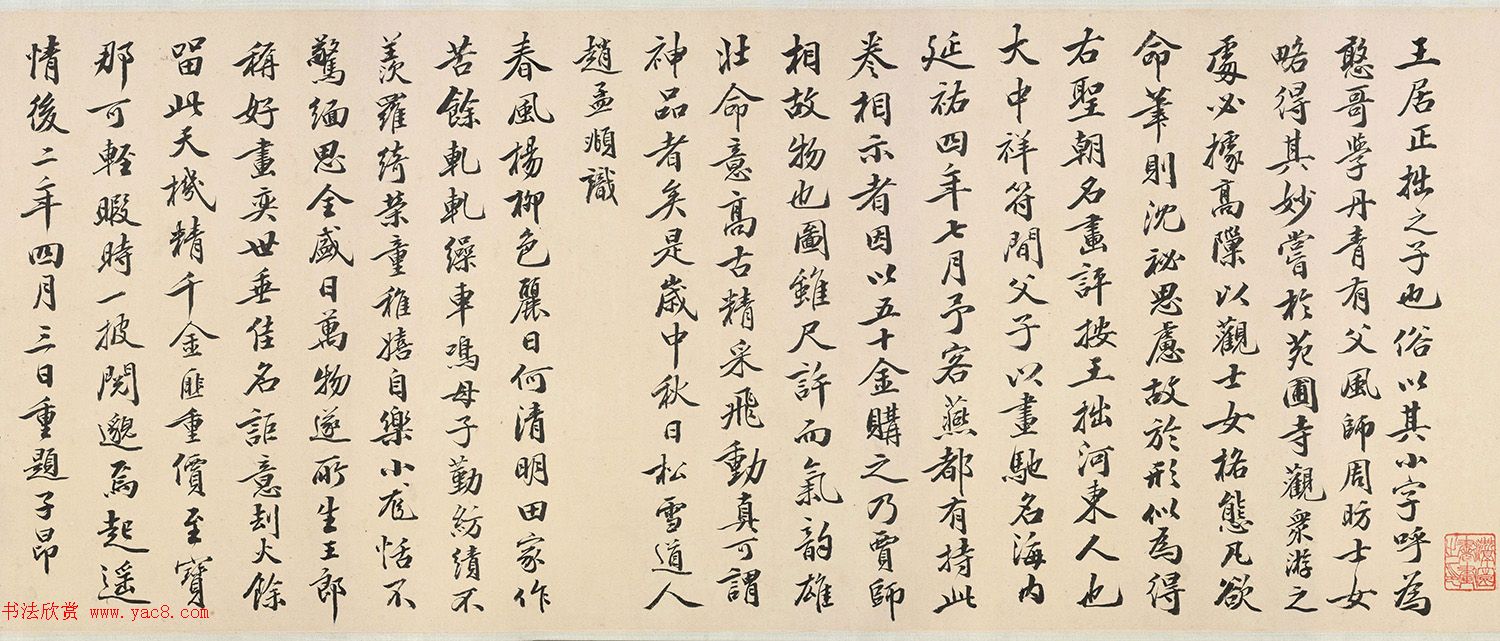 王居正拙之子也俗以其小字呼為
憨哥學丹青有父風師周昉士女
略得其妙嘗於苑圃寺觀眾游之
處必據高隙以觀士女格態凡欲
命筆則沈祕思慮故於形似為得
右聖朝名畫評按王拙河東人也
大中祥符間父子以畫馳名海內
延祐四年七月予客燕都有持此
卷相示者因以五十金購之乃賈師
相故物也圖雖尺許而氣韵雄
壯命意高古精采飛動真可謂
神品者矣是歲中秋日松雪道人
趙孟頫識
春風楊柳色麗日何清明田家作
苦餘軋軋繰車鳴母子勤紡績不
羨羅綺榮童稚嬉自樂小尨恬不
驚緬思全盛日萬物遂所生王郎
稱好畫奕世垂佳名詎意刦火餘
留此天機精千金匪重價至寶
那可輕暇時一披閱邈焉起遥
情後二年四月三日重題子昂
书法欣赏 www.yac8.com